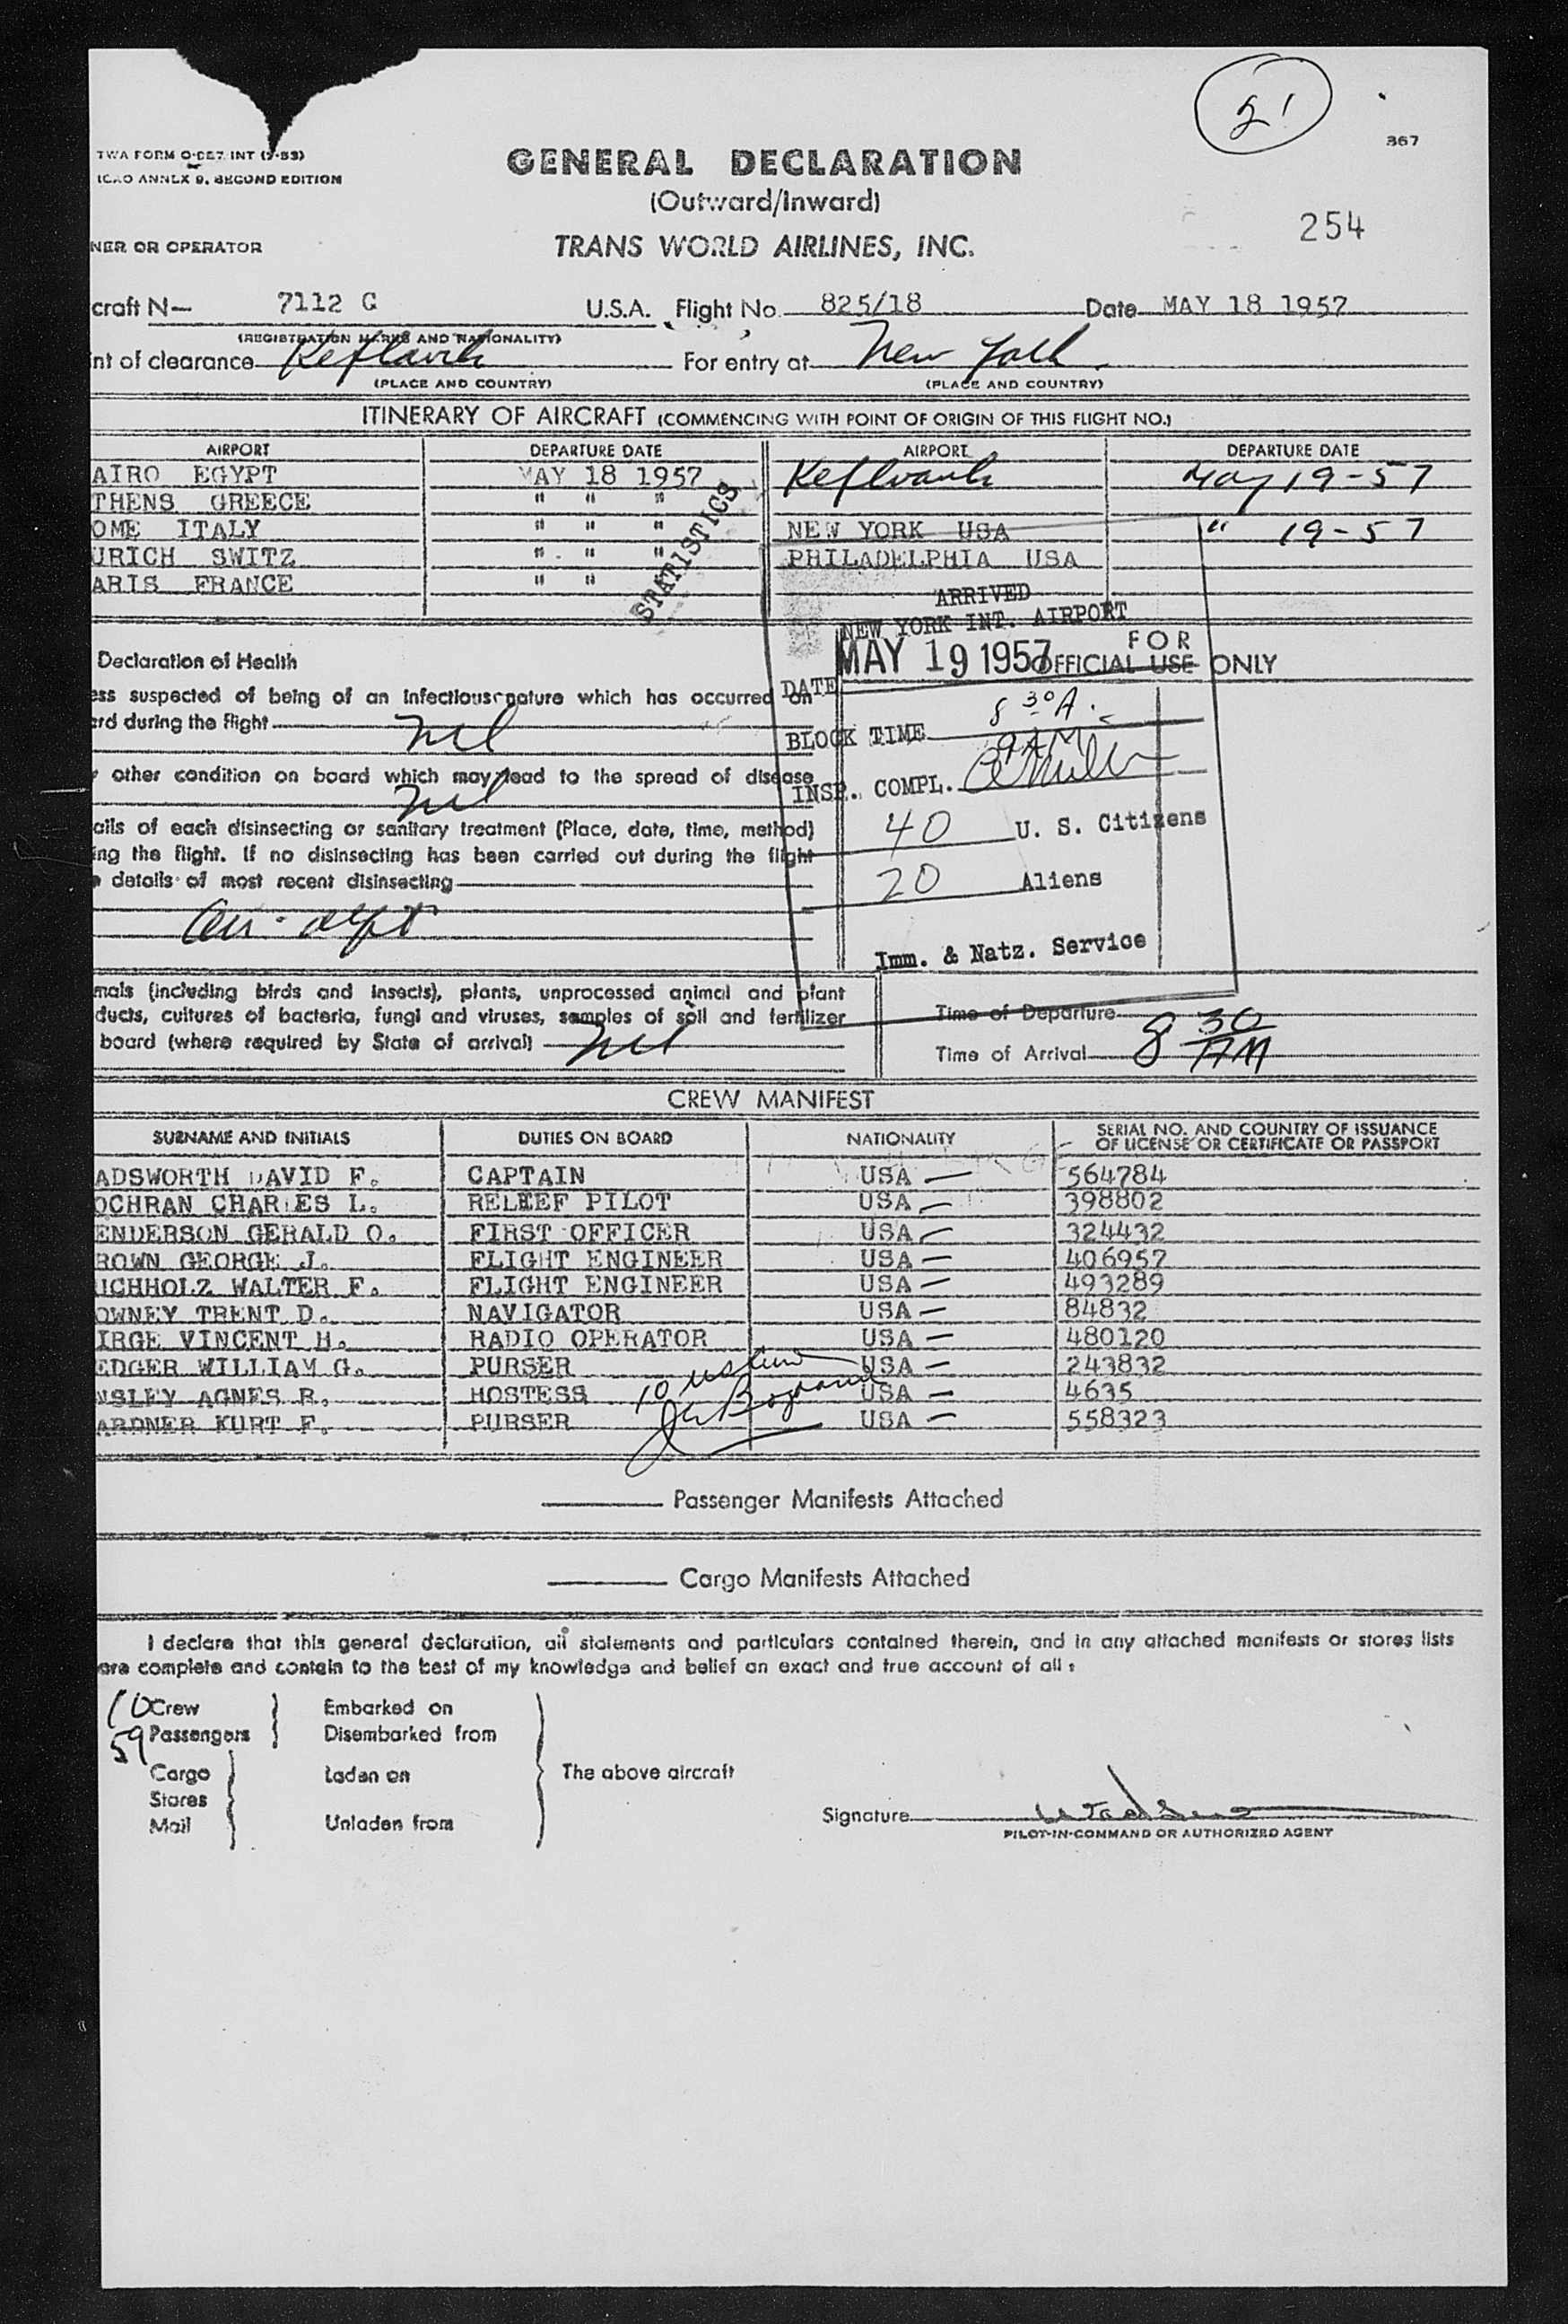 21
367
TWA FORM O-DE7 INT (9-53)
ICAO ANNEX 9, SECOND EDITION
GENERAL DECLARATION
(Outward/Inward)
254
NER OR OPERATOR
TRANS WORLD AIRLINES, INC.
craft N— 7112 G U.S.A. Flight No. 825/18 Date MAY 18 1957
(REGISTRATION MARKS AND NATIONALITY)
nt of clearance Keflavik For entry at New York
(PLACE AND COUNTRY) (PLACE AND COUNTRY)
ITINERARY OF AIRCRAFT (COMMENCING WITH POINT OF ORIGIN OF THIS FLIGHT NO.)
AIRPORT DEPARTURE DATE AIRPORT DEPARTURE DATE
AIRO EGYPT MAY 18 1957 Keflvavik May 19-57
THENS GREECE " " "
OME ITALY " " " NEW YORK USA " 19-57
URICH SWITZ " " " PHILADELPHIA USA
ARIS FRANCE " "
STATISTICS
ARRIVED
NEW YORK INT. AIRPORT
MAY 19 1957
FOR
OFFICIAL USE ONLY
Declaration of Health
DATE
ess suspected of being of an infectious nature which has occurred on
rd during the flight nil
8 30 A.
BLOCK TIME
9 AM
other condition on board which may lead to the spread of disease
nil
INSP. COMPL.
ails of each disinsecting or sanitary treatment (Place, date, time, method)
ing the flight. If no disinsecting has been carried out during the flight
details of most recent disinsecting
40 U. S. Citizens
20 Aliens
Imm. & Natz. Service
mals (including birds and insects), plants, unprocessed animal and plant
ducts, cultures of bacteria, fungi and viruses, samples of soil and fertilizer
board (where required by State of arrival) nil
Time of Departure
Time of Arrival 8 30 AM
CREW MANIFEST
SURNAME AND INITIALS DUTIES ON BOARD NATIONALITY SERIAL NO. AND COUNTRY OF ISSUANCE OF LICENSE OR CERTIFICATE OR PASSPORT
ADSWORTH DAVID F. CAPTAIN USA — 564784
OCHRAN CHARLES L. RELIEF PILOT USA — 398802
ENDERSON GERALD O. FIRST OFFICER USA — 324432
ROWN GEORGE J. FLIGHT ENGINEER USA — 406957
ICHHOLZ WALTER F. FLIGHT ENGINEER USA — 493289
OWNEY TRENT D. NAVIGATOR USA — 84832
IRGE VINCENT H. RADIO OPERATOR USA — 480120
EDGER WILLIAM G. PURSER USA — 243832
NSLEY AGNES R. HOSTESS USA — 4635
ARDNER KURT F. PURSER USA — 558323
10
Passenger Manifests Attached
Cargo Manifests Attached
I declare that this general declaration, all statements and particulars contained therein, and in any attached manifests or stores lists
are complete and contain to the best of my knowledge and belief an exact and true account of all:
10 Crew Embarked on
59 Passengers Disembarked from
Cargo Laden on The above aircraft
Stores
Mail Unladen from
Signature
PILOT-IN-COMMAND OR AUTHORIZED AGENT